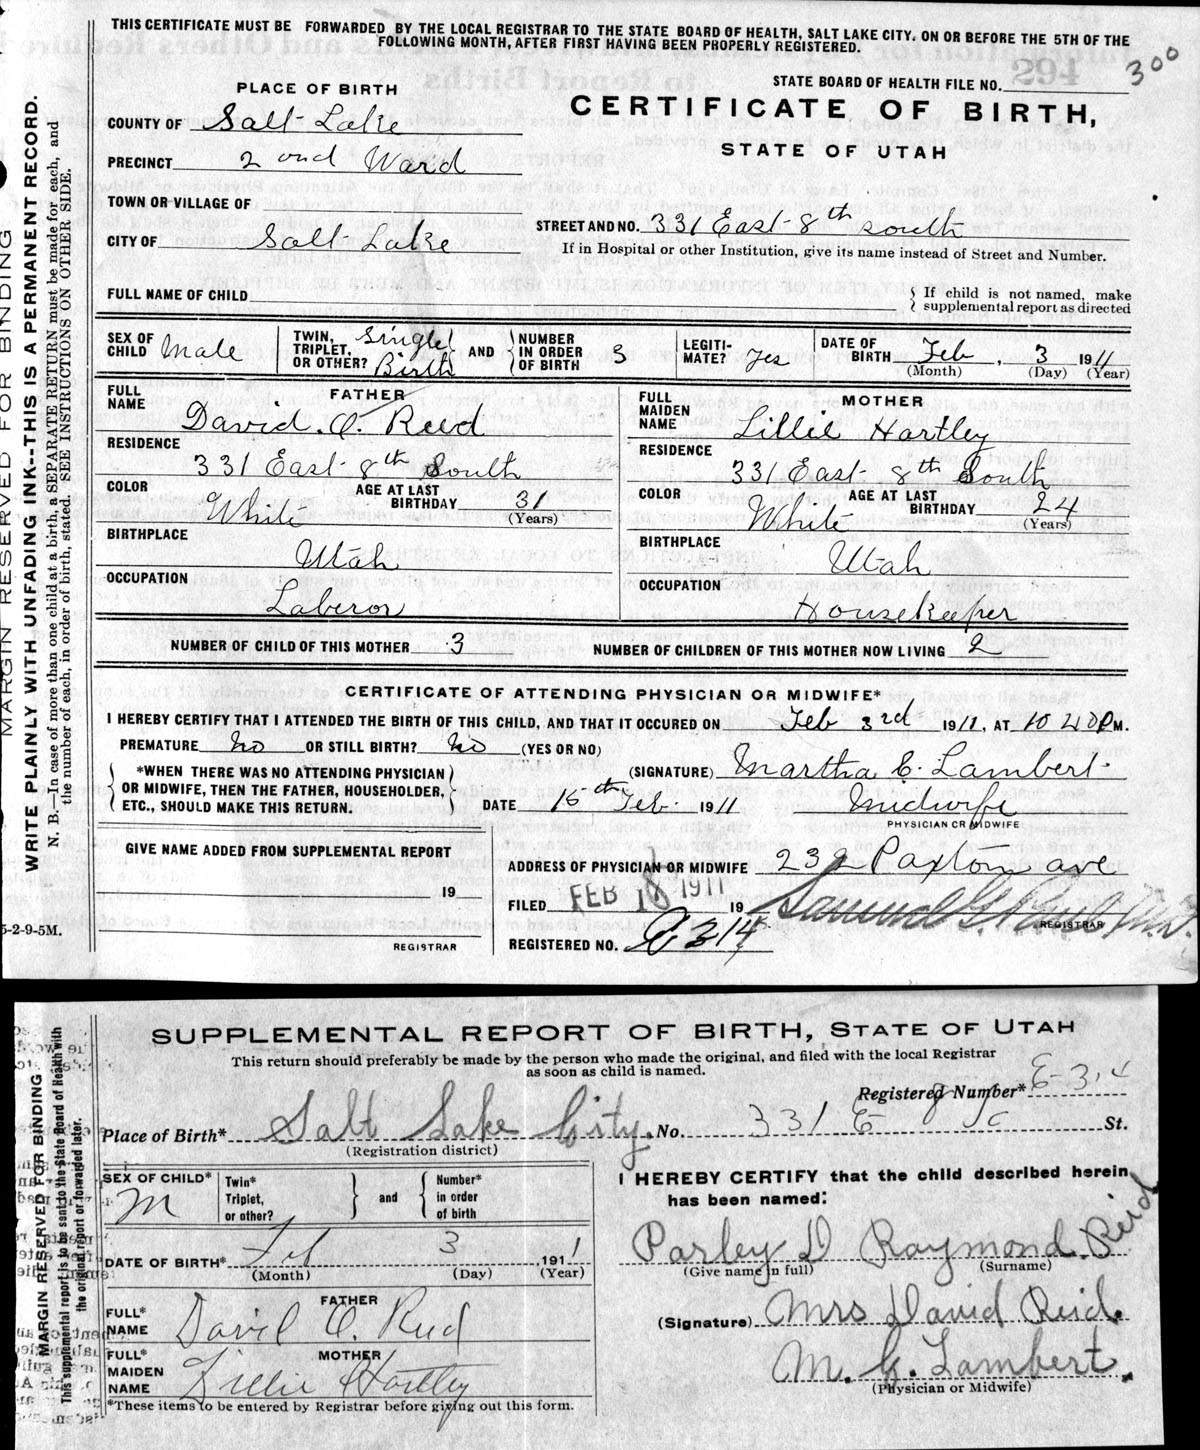 THIS CERTIFICATE MUST BE FORWARDED BY THE LOCAL REGISTRAR TO THE STATE BOARD OF HEALTH, SALT LAKE CITY, ON OR BEFORE THE 5TH OF THE
FOLLOWING MONTH, AFTER FIRST HAVING BEEN PROPERLY REGISTERED.
300
STATE BOARD OF HEALTH FILE NO.
CERTIFICATE OF BIRTH,
STATE OF UTAH
PLACE OF BIRTH
COUNTY OF Salt Lake
PRECINCT 2 ond Ward
TOWN OR VILLAGE OF
CITY OF Salt Lake
STREET AND NO. 331 East 8th south
If in Hospital or other Institution, give its name instead of Street and Number.
FULL NAME OF CHILD
If child is not named, make
supplemental report as directed
SEX OF CHILD Male TWIN, TRIPLET, OR OTHER? Single Birth AND NUMBER IN ORDER OF BIRTH 3 LEGITI-MATE? Yes DATE OF BIRTH Feb, 3 1911
(Month) (Day) (Year)
FATHER
FULL NAME David. O. Reed
RESIDENCE 331 East 8th South
COLOR White AGE AT LAST BIRTHDAY 31
(Years)
BIRTHPLACE Utah
OCCUPATION Laberor
MOTHER
FULL MAIDEN NAME Lillie Hartley
RESIDENCE 331 East 8th South
COLOR White AGE AT LAST BIRTHDAY 24
(Years)
BIRTHPLACE Utah
OCCUPATION Housekeeper
NUMBER OF CHILD OF THIS MOTHER 3 NUMBER OF CHILDREN OF THIS MOTHER NOW LIVING 2
CERTIFICATE OF ATTENDING PHYSICIAN OR MIDWIFE*
I HEREBY CERTIFY THAT I ATTENDED THE BIRTH OF THIS CHILD, AND THAT IT OCCURED ON Feb 3rd 1911, AT 10 40 P M.
PREMATURE No OR STILL BIRTH? No (YES OR NO)
*WHEN THERE WAS NO ATTENDING PHYSICIAN
OR MIDWIFE, THEN THE FATHER, HOUSEHOLDER,
ETC., SHOULD MAKE THIS RETURN.
(SIGNATURE) Martha C. Lambert
DATE 15th Feb. 1911 Midwife
PHYSICIAN OR MIDWIFE
GIVE NAME ADDED FROM SUPPLEMENTAL REPORT
19
REGISTRAR
ADDRESS OF PHYSICIAN OR MIDWIFE 232 Paxton ave
FILED FEB 18 1911 19
REGISTRAR
REGISTERED NO. E 314
MARGIN RESERVED FOR BINDING
WRITE PLAINLY WITH UNFADING INK--THIS IS A PERMANENT RECORD.
N. B.—In case of more than one child at a birth, a SEPARATE RETURN must be made for each, and
the number of each, in order of birth, stated. SEE INSTRUCTIONS ON OTHER SIDE.
5-2-9-5M.
SUPPLEMENTAL REPORT OF BIRTH, STATE OF UTAH
This return should preferably be made by the person who made the original, and filed with the local Registrar
as soon as child is named.
Registered Number* E-314
Place of Birth* Salt Lake City. No. 331 E 8 So St.
(Registration district)
SEX OF CHILD* M Twin* Triplet, or other? and Number* in order of birth
DATE OF BIRTH* Feb 3 1911
(Month) (Day) (Year)
FATHER
FULL* NAME David O. Reed
MOTHER
FULL* MAIDEN NAME Lillie Hartley
*These items to be entered by Registrar before giving out this form.
I HEREBY CERTIFY that the child described herein
has been named:
Parley D Raymond Reid
(Give name in full) (Surname)
(Signature) Mrs David Reid.
M. C. Lambert.
(Physician or Midwife)
MARGIN RESERVED FOR BINDING
This supplemental report is to be sent to the State Board of Health with
the original report or forwarded later.